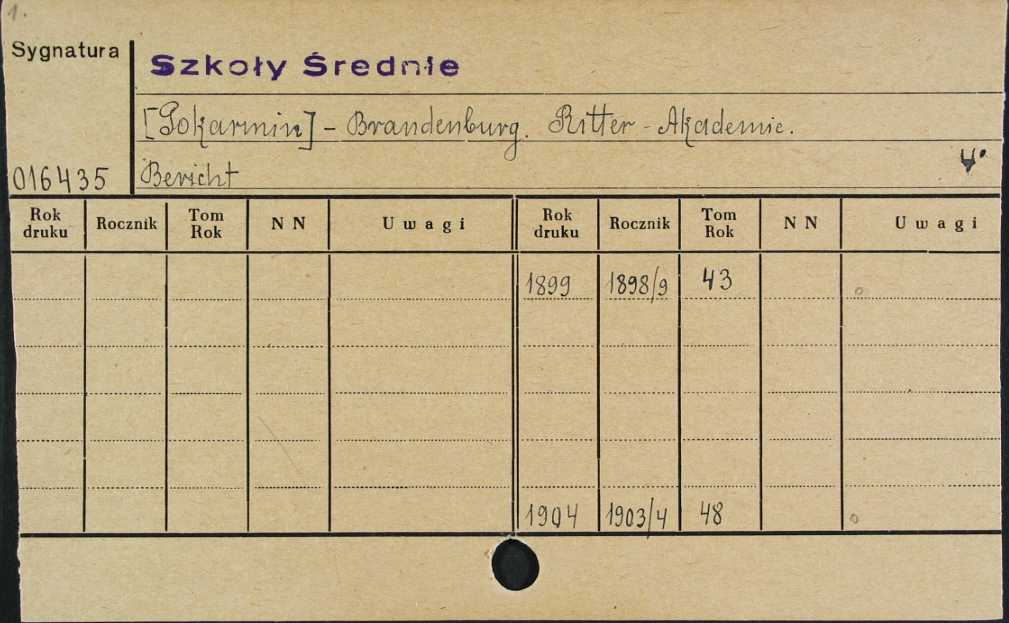 1.
Sygnatura
Szkoły Średnie
[Pokarmin] - Brandenburg. Ritter - Akademie.
016435
Bericht
4°
Rok druku Rocznik Tom Rok NN Uwagi Rok druku Rocznik Tom Rok NN Uwagi
1899 1898/9 43
1904 1903/4 48